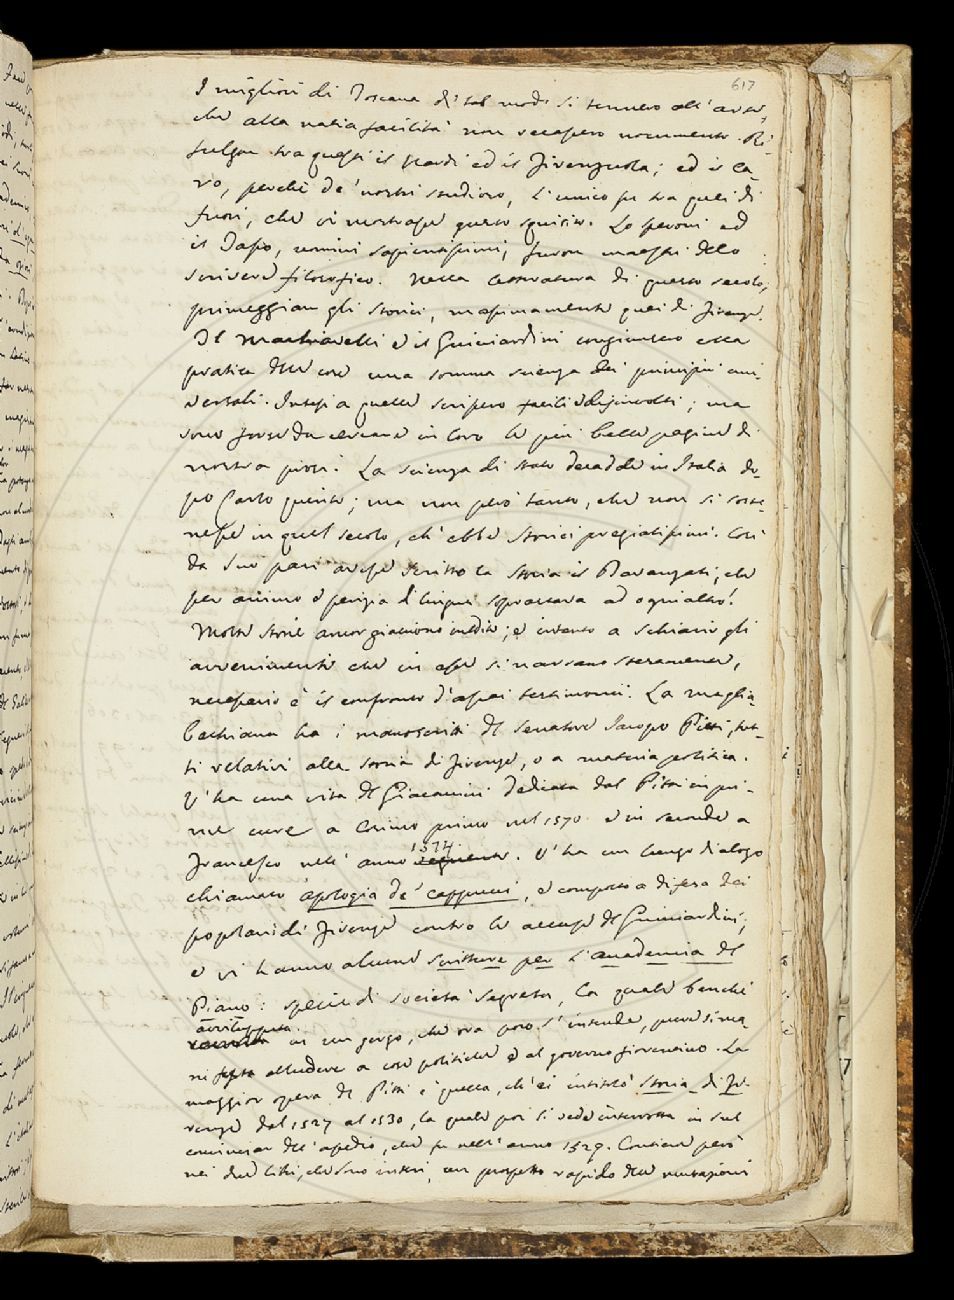 617
I migliori di Toscana di tal modo si tennero all'arte,
che alla natia facilità non recassero nocumento. Ri-
fulgon tra questi il Nardi ed il Firenzuola; ed il Ca-
ro, perchè de' nostri studioso, l'unico fu tra quei di
fuori, che vi mostrasse gusto squisito. Lo Speroni ed
il Tasso, uomini sapientissimi, furon maestri dello
scrivere filosofico. Nella letteratura di questo secolo,
primeggian gli storici, massimamente quei di Firenze.
Il Machiavelli e il Guicciardini congiunsero colla
pratica delle cose una somma scienza dei principii uni-
versali. Intesi a quelle scrissero facili e disinvolti; ma
sono forse da cercare in loro le più belle pagine di
nostra prosa. La scienza di stato decadde in Italia do-
po Carlo quinto; ma non però tanto, che non si soste-
nesse in quel secolo, ch'ebbe storici pregiatissimi. Così
da suo pari avesse scritto la storia il Davanzati, che
per animo e perizia di lingua soprastava ad ogni altro!
Molte storie ancor giacciono inedite; e intanto a schiarir gli
avvenimenti che in esse si narrano
necessario è il confronto d'assai testimonii. La maglia-
bechiana ha i manoscritti del Senatore Jacopo Pitti, tut-
ti relativi alla storia di Firenze, o a materia politica.
V'ha una vita del Giacomini dedicata dal Pitti in pri-
me cure a Cosimo primo nel 1570 e in seconde a
Francesco nell'anno seguente 1574. V'ha un lungo dialogo
chiamato apologia de' cappucci, e composto a difesa dei
popolani di Firenze contro le accuse del Guicciardini;
e vi hanno alcune scritture per l'accademia del
Piano: specie di società segreta, la quale benchè
avviluppata in un gergo, che ora poco s'intende, pure si ma-
ni festa alludere a cose politiche e al governo fiorentino. La
maggior opera del Pitti è quella, ch'ei intitolò storia di Fi-
renze dal 1527 al 1530, la quale poi si vede interrotta in sul
cominciar dell'assedio, che fu nell'anno 1529. Contiene però
nei due libri, che sono intieri, un prospetto rapido delle mutazioni